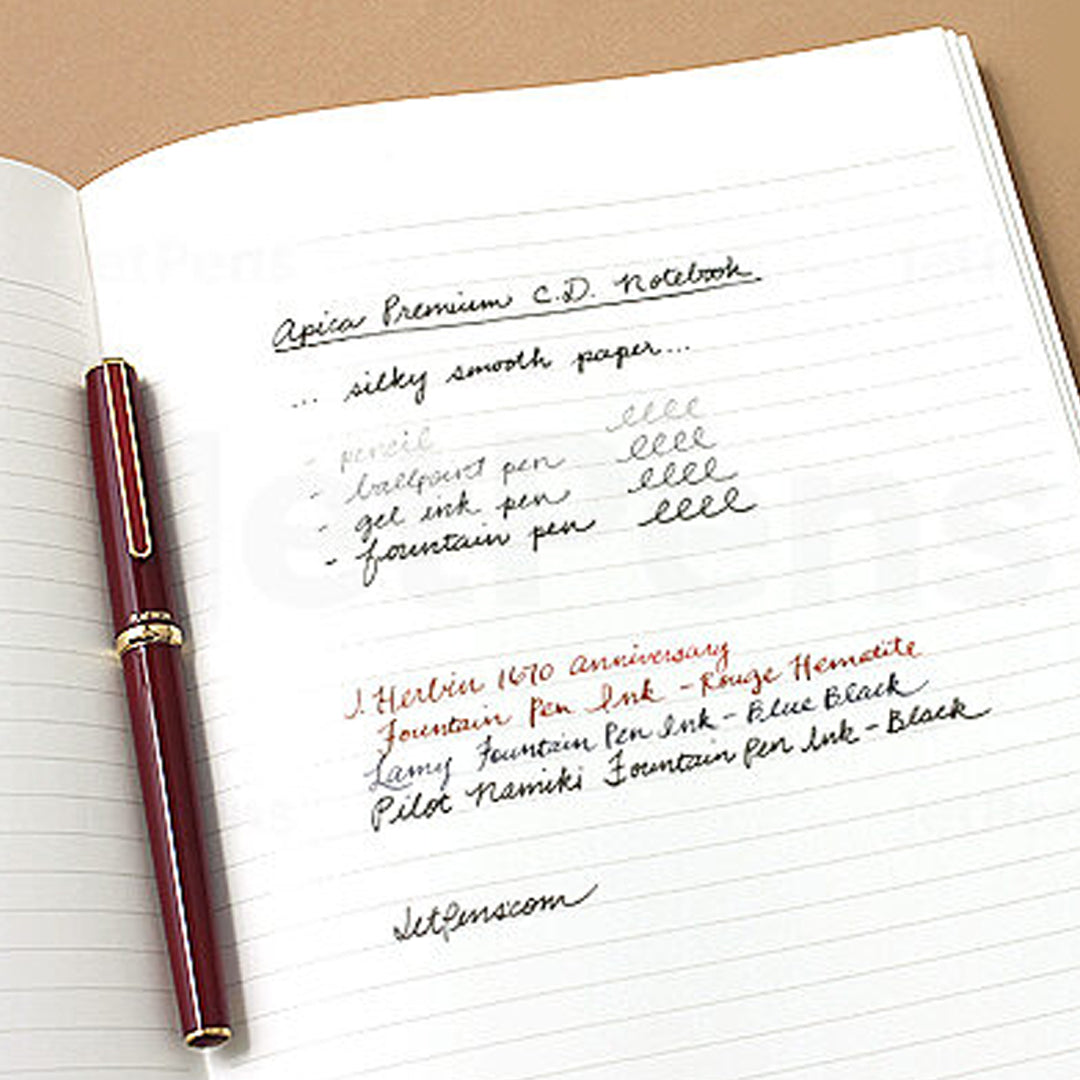 Apica Premium C.D. Notebook
... silky smooth paper...
- pencil eeee
- ballpoint pen eeee
- gel ink pen eeee
- fountain pen eeee
J. Herbin 1670 Anniversary
Fountain Pen Ink - Rouge Hematite
Lamy Fountain Pen Ink - Blue Black
Pilot Namiki Fountain Pen Ink - Black
JetPens.com
JetPens